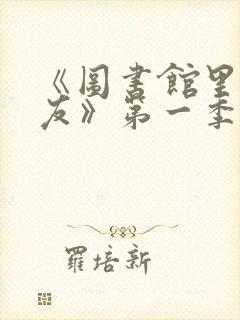 《圖書館里
友》第一季
羅培新